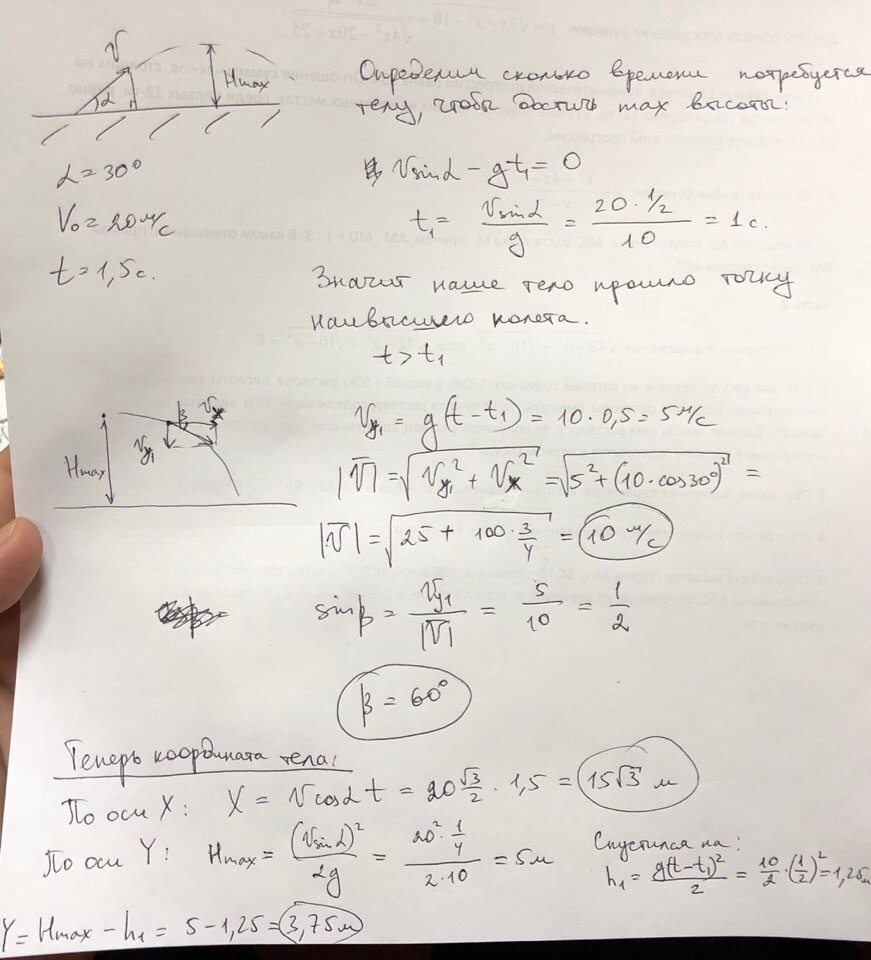 V
α
Hmax
Определим сколько времени потребуется
телу, чтобы достичь max высоты:
α = 30°
V₀ = 20 м/с
t = 1,5 с.
Vsinα – gt₁ = 0
t₁ = Vsinα/g = 20 · 1/2 / 10 = 1 с.
Значит наше тело прошло точку
наивысшего полета.
t > t₁
Hmax
β
Vx
Vy₁
Vy₁ = g(t – t₁) = 10 · 0,5 = 5 м/с
|V̅| = √(Vy₁² + Vx²) = √(5² + (10 · cos30°)²) =
|V̅| = √(25 + 100 · 3/4) = 10 м/с
sinβ = Vy₁/|V̅| = 5/10 = 1/2
β = 60°
Теперь координата тела:
По оси X: X = Vcosα t = 20 √3/2 · 1,5 = 15√3 м
По оси Y: Hmax = (Vsinα)²/2g = 20² · 1/4 / 2 · 10 = 5 м
Спустился на:
h₁ = g(t – t₁)²/2 = 10/2 · (1/2)² = 1,25 м
Y = Hmax – h₁ = 5 – 1,25 = 3,75 м